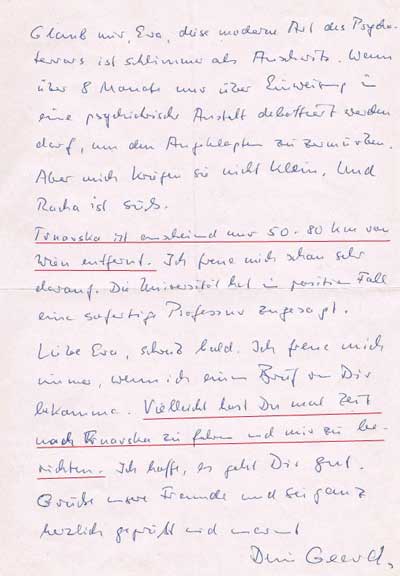 Glaub mir, Eva, diese moderne Art des Psycho-
terrors ist schlimmer als Auschwitz. Wenn
über 8 Monate nur über Einweisung in
eine psychiatrische Anstalt debattiert werden
darf, um den Angeklagten zu zermürben.
Aber mich kriegen sie nicht klein. Und
Rache ist süß.
Trnavska ist anscheinend nur 50-80 km von
Wien entfernt. Ich freue mich schon sehr
darauf. Die Universität hat im positiven Fall
eine sofortige Professur zugesagt.
Liebe Eva, schreib bald. Ich freue mich
immer, wenn ich einen Brief von Dir
bekomme. Vielleicht hast Du mal Zeit
nach Trnavska zu fahren und mir zu be-
richten. Ich hoffe, es geht Dir gut.
Grüße unsere Freunde und sei ganz
herzlich gegrüßt und umarmt
Dein